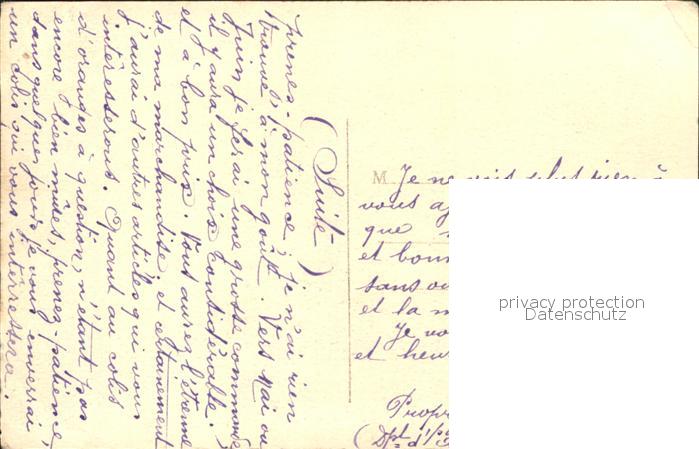 (Suite)
prenez-patience, je n'ai rien
trouvé à mon goût. Vers Mai ou
Juin je ferai une grosse commande
il y aura un choix considérable.
et à bon prix. Vous aurez l'étrenne
de ma marchandise, et certainement
j'aurai d'autres articles qui vous
intéresserons. Quant au colis
d'oranges à question, n'étant pas
encore bien mûres, prenez-patience,
dans quelques jours je vous enverrai
un colis qui vous intéressera.
M. Je ne vois plus rien à
vous
que
et bonn
sans ou
et la m
Je vo
et heur
Propr
(Dpt d'
privacy protection
Datenschutz